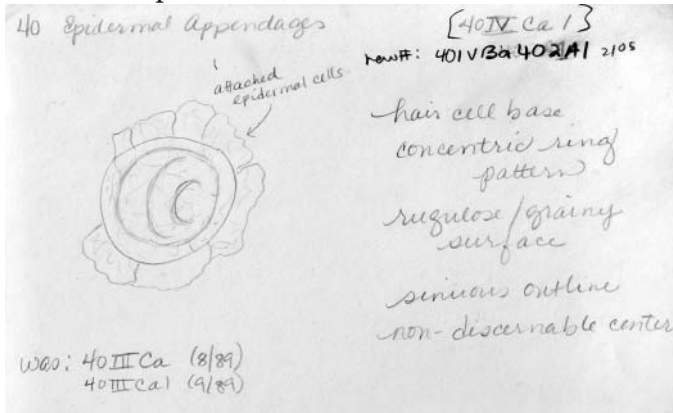 40 Epidermal Appendages
[40 IV Ca 1]
new#: 40IVBa 402A1 2/05
attached
epidermal cells
hair cell base
concentric ring
pattern
rugulose/grainy
surface
sinuous outline
non-discernable center
was: 40 III Ca (8/89)
40 III Ca1 (9/89)